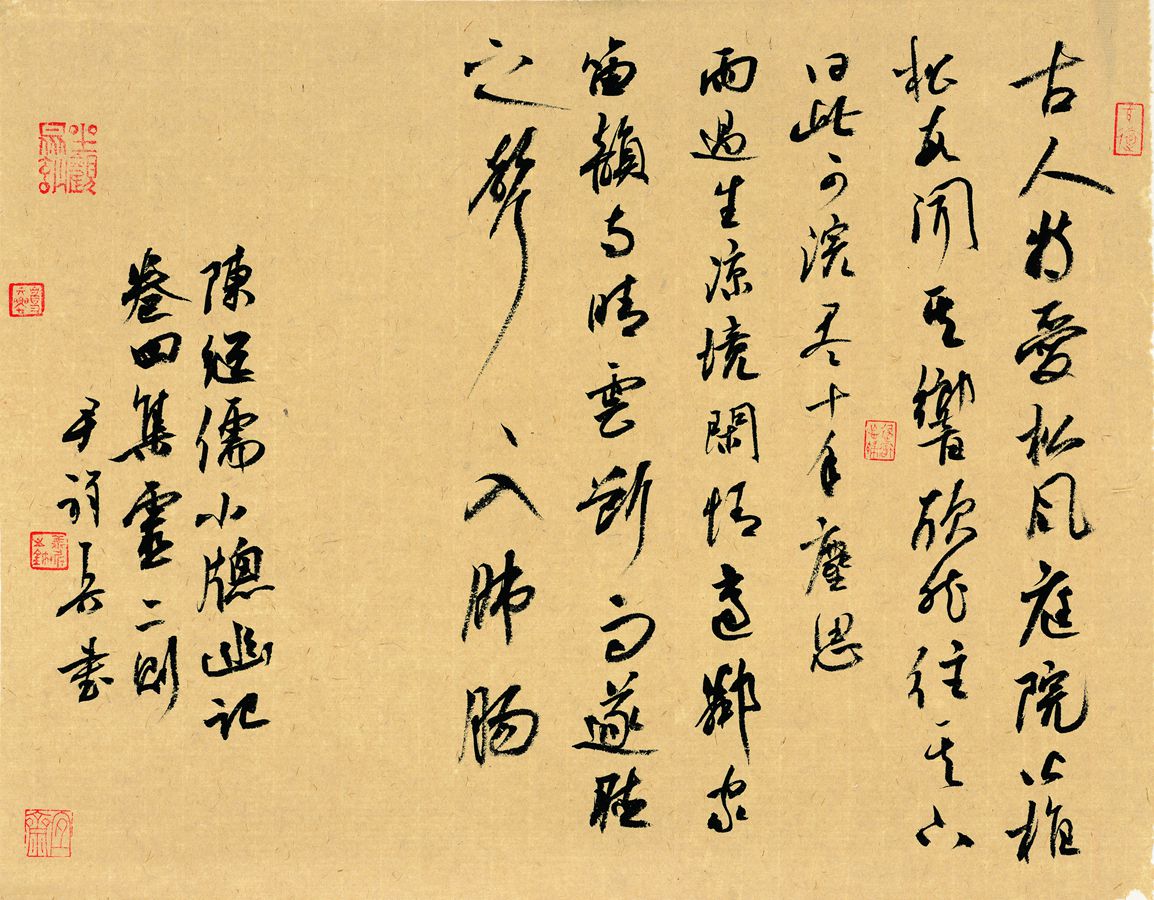 古人特愛松風庭院皆植
松每聞其響欣然往其下
曰此可浣盡十年塵思
雨過生涼境閑情適鄰家
笛韻与晴雲斷雨遂聽
之聲〻入肺腸
陳繼儒小牕幽記
卷四集靈二則
書